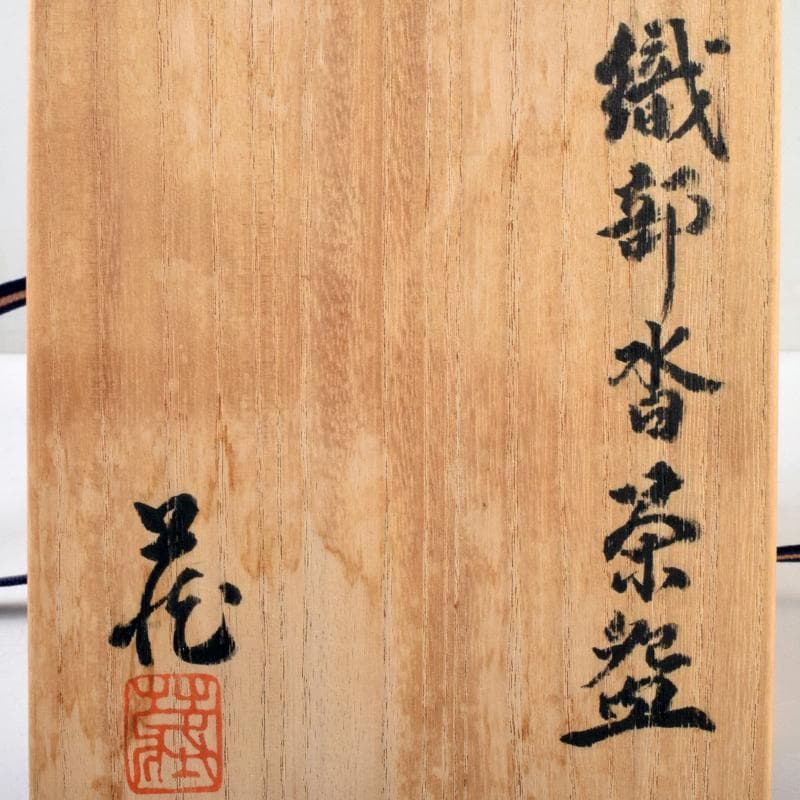 織部沓茶盌